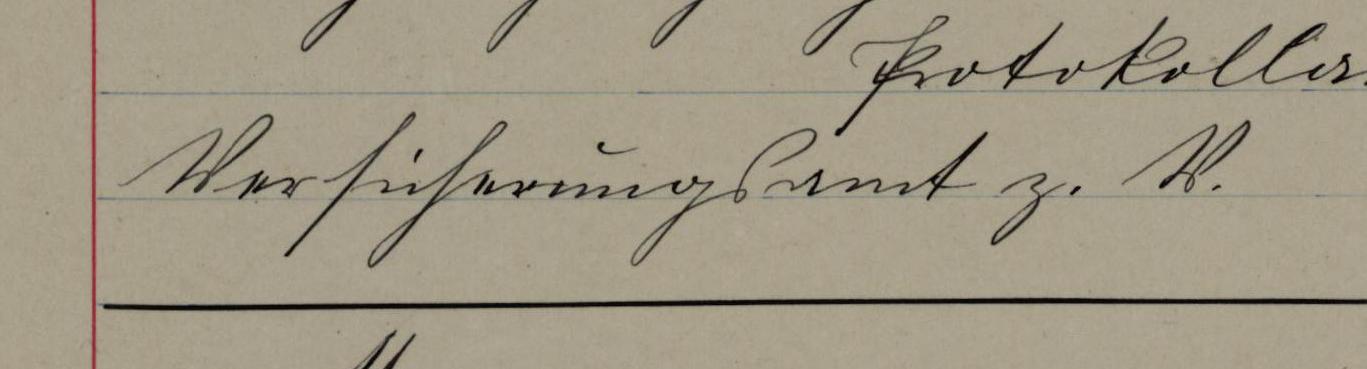 Protokolla
Versicherungsamt z. V.